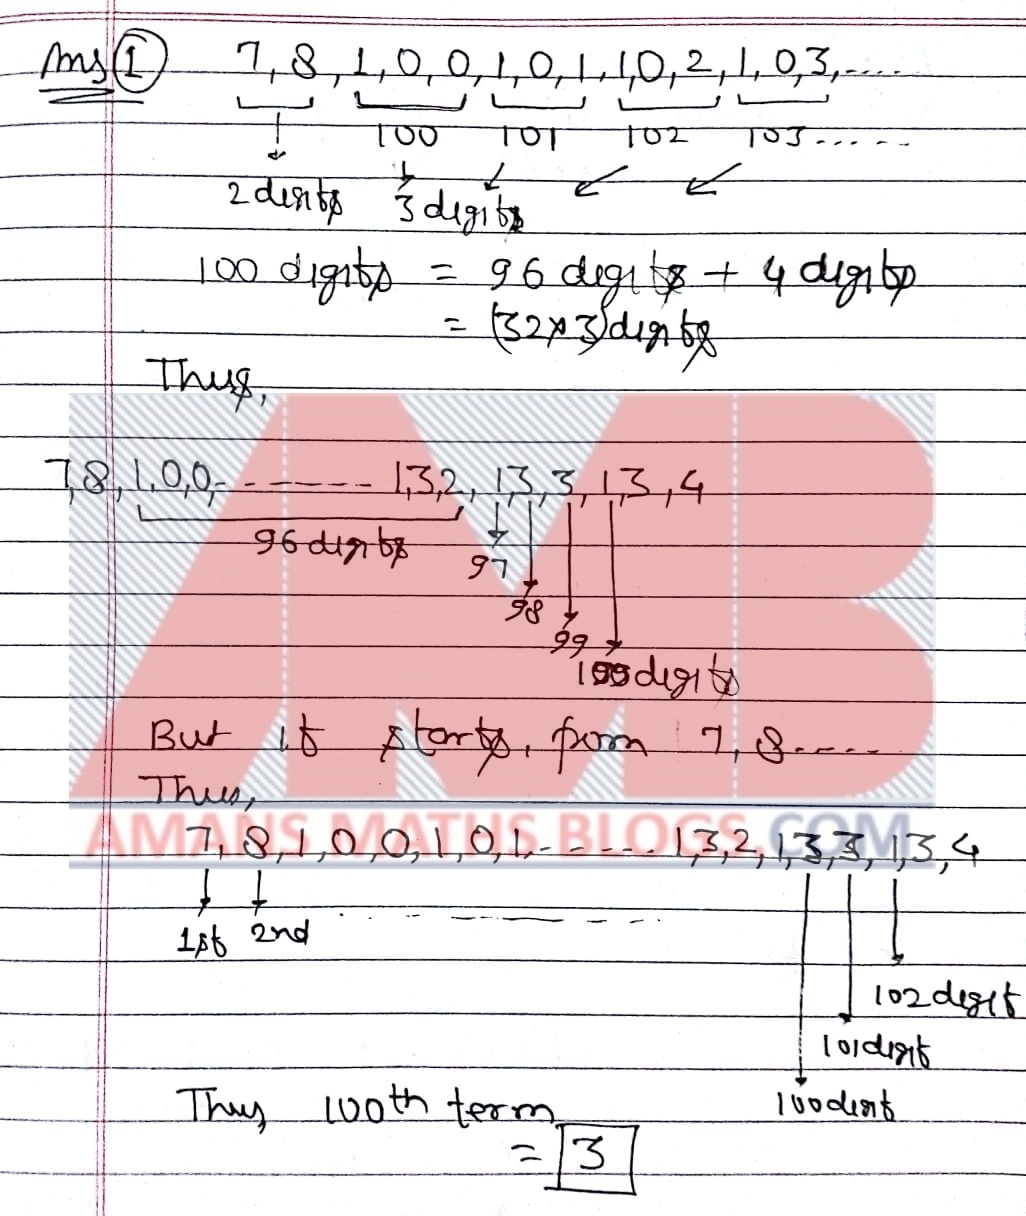 Ans 1 7, 8, 1, 0, 0, 1, 0, 1, 1, 0, 2, 1, 0, 3, .....
100 101 102 103......
2 digits 3 digits
100 digits = 96 digits + 4 digits
= (32×3) digits
Thus,
7, 8, 1, 0, 0, - - - - - - - 1, 3, 2, 1, 3, 3, 1, 3, 4
96 digits
97
98
99
100 digits
But it starts, from 7, 8.....
Thus,
AMANS MATHS BLOGS.COM
7, 8, 1, 0, 0, 1, 0, 1, - - - - - 1, 3, 2, 1, 3, 3, 1, 3, 4
1st 2nd
102 digit
101 digit
100 digit
Thus, 100th term
= 3